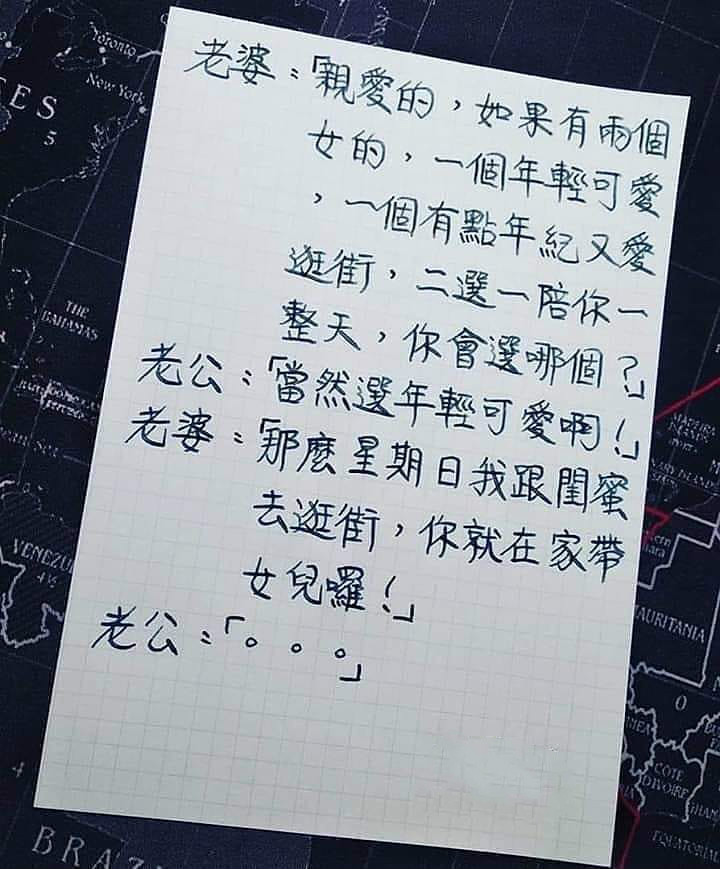 老婆：「親愛的，如果有兩個
女的，一個年輕可愛
，一個有點年紀又愛
逛街，二選一陪你一
整天，你會選哪個？」
老公：「當然選年輕可愛啊！」
老婆：「那麼星期日我跟閨蜜
去逛街，你就在家帶
女兒囉！」
老公：「。。。」
Toronto
New York
ES
5
THE
BAHAMAS
VENEZU
4½
4
BRAZ
MADEIRA
MAURITANIA
0
CÔTE
D'IVOIRE
GHAN
EQUATORIAL